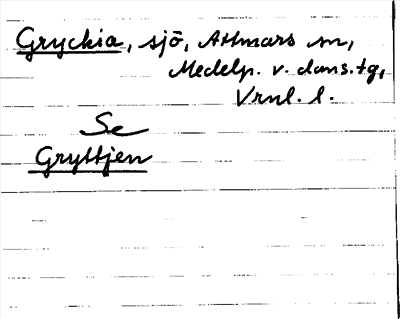 Gryckia, sjö, Attmars sn,
Medelp. v. doms.tg,
Vrnl. l.
Se
Gryttjen